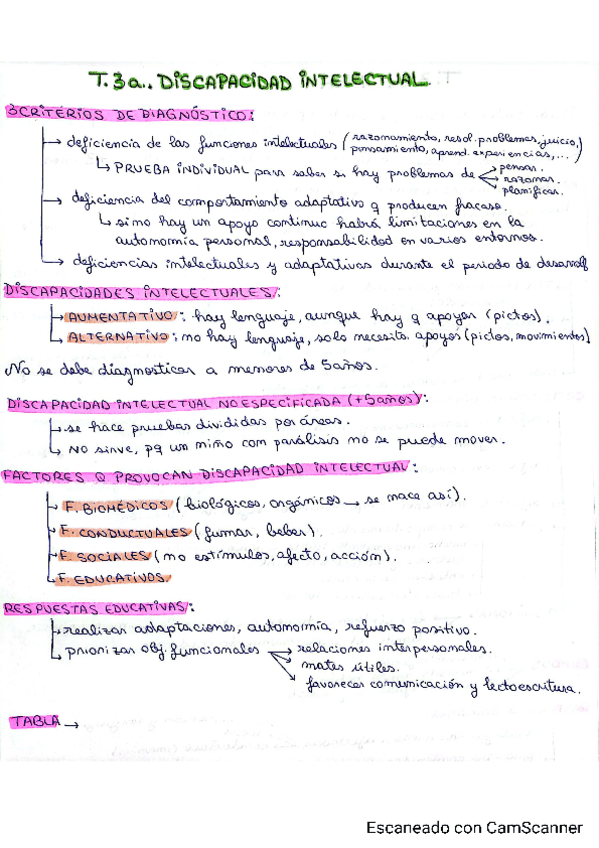 T.3a.. DISCAPACIDAD INTELECTUAL.
3CRITERIOS DE DIAGNÓSTICO:
→ deficiencia de las funciones intelectuales (razonamiento, resol. problemas, juicio,
pensamiento, aprend. experiencias,...)
↳ PRUEBA INDIVIDUAL para saber si hay problemas de pensar.
razonar.
planificar.
→ deficiencia del comportamiento adaptativo q producen fracaso.
↳ si no hay un apoyo continuo habrá limitaciones en la
autonomía personal, responsabilidad en varios entornos.
→ deficiencias intelectuales y adaptativas durante el periodo de desarroll
DISCAPACIDADES INTELECTUALES:
→ AUMENTATIVO: hay lenguaje, aunque hay q apoyar (pictos).
→ ALTERNATIVO: no hay lenguaje, solo necesita apoyos (pictos, movimientos)
No se debe diagnosticar a menores de 5años.
DISCAPACIDAD INTELECTUAL NO ESPECIFICADA (+5años):
→ se hace pruebas divididas por áreas.
→ NO sirve, pq un niño con parálisis no se puede mover.
FACTORES Q PROVOCAN DISCAPACIDAD INTELECTUAL:
→ F. BIOMÉDICOS (biológicos, orgánicos → se nace así).
→ F. CONDUCTUALES (fumar, beber).
→ F. SOCIALES (no estímulos, afecto, acción).
→ F. EDUCATIVOS.
RESPUESTAS EDUCATIVAS:
→ realizar adaptaciones, autonomía, refuerzo positivo.
→ priorizar obj. funcionales → relaciones interpersonales.
mates útiles.
favorecer comunicación y lectoescritura.
TABLA →
Escaneado con CamScanner